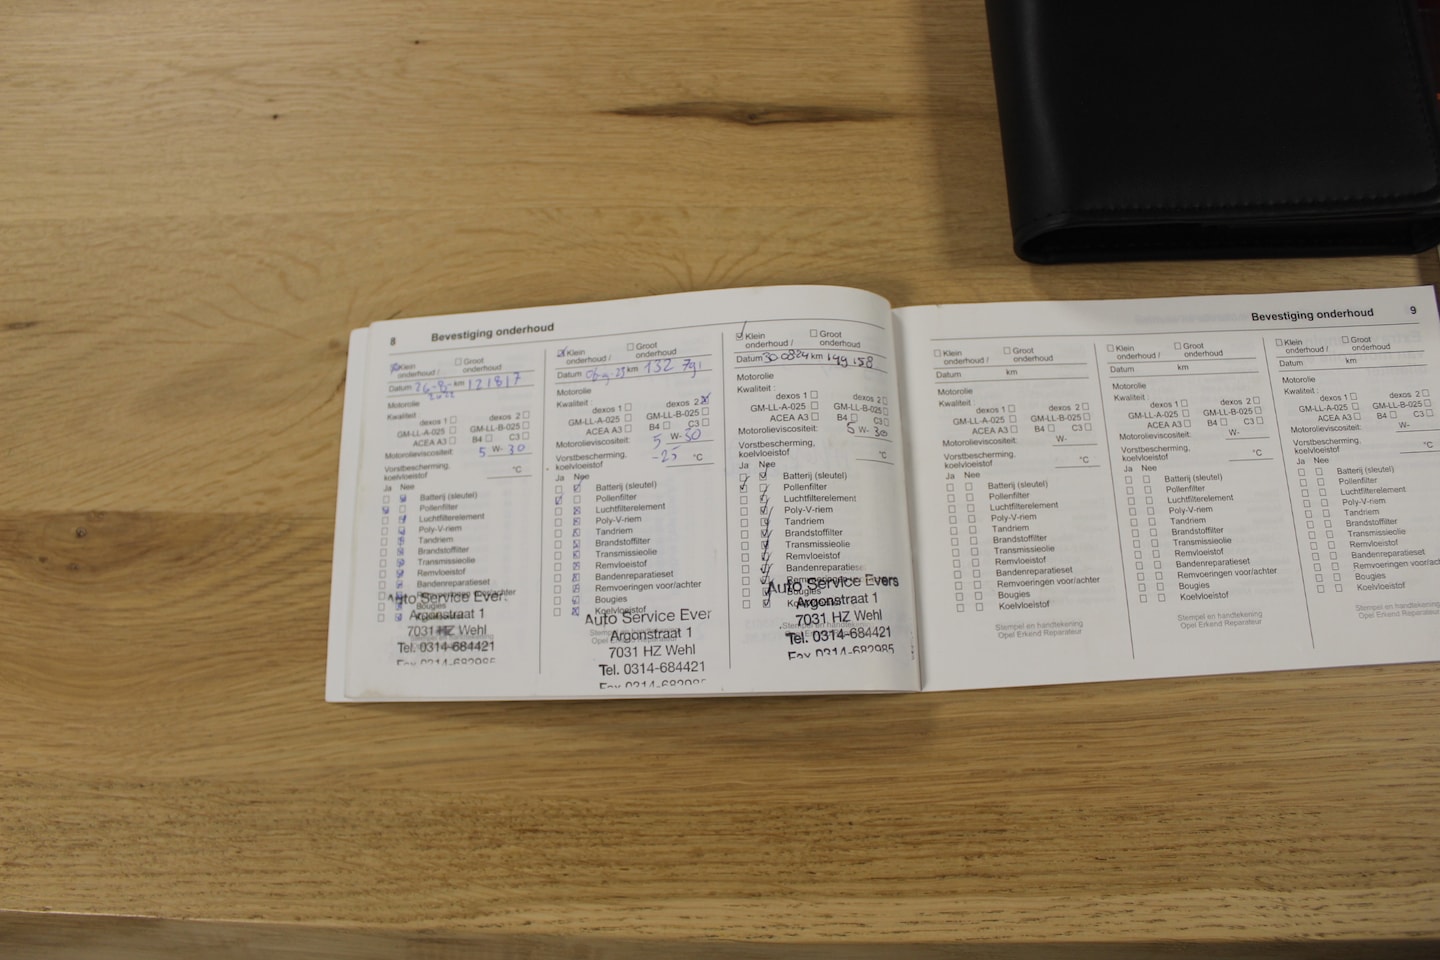 8 Bevestiging onderhoud
Klein onderhoud / Groot onderhoud
Datum 26-8-2022 km 121817
Motorolie
Kwaliteit :
dexos 1 dexos 2
GM-LL-A-025 GM-LL-B-025
ACEA A3 B4 C3
Motorolieviscositeit: 5 W- 30
Vorstbescherming,
koelvloeistof °C
Ja Nee
Batterij (sleutel)
Pollenfilter
Luchtfilterelement
Poly-V-riem
Tandriem
Brandstoffilter
Transmissieolie
Remvloeistof
Bandenreparatieset
Remvoeringen voor/achter
Bougies
Auto Service Ever
Argonstraat 1
7031 HZ Wehl
Tel. 0314-684421
Fax 0314-682985
Klein onderhoud / Groot onderhoud
Datum 23 km 132 791
Motorolie
Kwaliteit :
dexos 1 dexos 2
GM-LL-A-025 GM-LL-B-025
ACEA A3 B4 C3
Motorolieviscositeit: 5 W- 30
Vorstbescherming,
koelvloeistof -25 °C
Ja Nee
Batterij (sleutel)
Pollenfilter
Luchtfilterelement
Poly-V-riem
Tandriem
Brandstoffilter
Transmissieolie
Remvloeistof
Bandenreparatieset
Remvoeringen voor/achter
Bougies
Koelvloeistof
Auto Service Ever
Argonstraat 1
7031 HZ Wehl
Tel. 0314-684421
Klein onderhoud / Groot onderhoud
Datum 30-0824 km 149.158
Motorolie
Kwaliteit :
dexos 1 dexos 2
GM-LL-A-025 GM-LL-B-025
ACEA A3 B4 C3
Motorolieviscositeit: 5 W- 30
Vorstbescherming,
koelvloeistof °C
Ja Nee
Batterij (sleutel)
Pollenfilter
Luchtfilterelement
Poly-V-riem
Tandriem
Brandstoffilter
Transmissieolie
Remvloeistof
Bandenreparatieset
Auto Service Evers
Argonstraat 1
7031 HZ Wehl
Tel. 0314-684421
Fax 0314-682985
Bevestiging onderhoud 9
Klein onderhoud / Groot onderhoud
Datum km
Motorolie
Kwaliteit :
dexos 1 dexos 2
GM-LL-A-025 GM-LL-B-025
ACEA A3 B4 C3
Motorolieviscositeit: W-
Vorstbescherming,
koelvloeistof °C
Ja Nee
Batterij (sleutel)
Pollenfilter
Luchtfilterelement
Poly-V-riem
Tandriem
Brandstoffilter
Transmissieolie
Remvloeistof
Bandenreparatieset
Remvoeringen voor/achter
Bougies
Koelvloeistof
Stempel en handtekening
Opel Erkend Reparateur
Klein onderhoud / Groot onderhoud
Datum km
Motorolie
Kwaliteit :
dexos 1 dexos 2
GM-LL-A-025 GM-LL-B-025
ACEA A3 B4 C3
Motorolieviscositeit: W-
Vorstbescherming,
koelvloeistof °C
Ja Nee
Batterij (sleutel)
Pollenfilter
Luchtfilterelement
Poly-V-riem
Tandriem
Brandstoffilter
Transmissieolie
Remvloeistof
Bandenreparatieset
Remvoeringen voor/achter
Bougies
Koelvloeistof
Stempel en handtekening
Opel Erkend Reparateur
Klein onderhoud / Groot onderhoud
Datum km
Motorolie
Kwaliteit :
dexos 1 dexos 2
GM-LL-A-025 GM-LL-B-025
ACEA A3 B4 C3
Motorolieviscositeit: W-
Vorstbescherming,
koelvloeistof
Ja Nee
Batterij (sleutel)
Pollenfilter
Luchtfilterelement
Poly-V-riem
Tandriem
Brandstoffilter
Transmissieolie
Remvloeistof
Bandenreparatieset
Remvoeringen voor/achter
Bougies
Koelvloeistof
Stempel en handtekening
Opel Erkend Reparateur